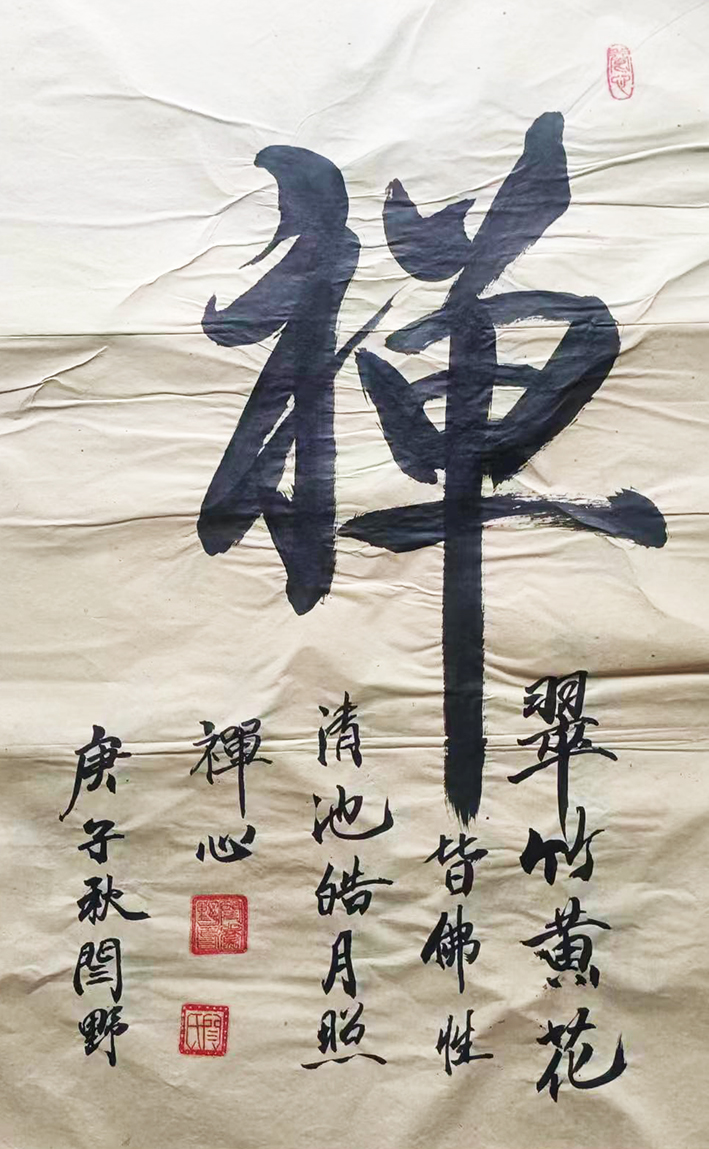 禅
翠竹黄花
皆佛性
清池皓月照
禪心
庚子秋閆野